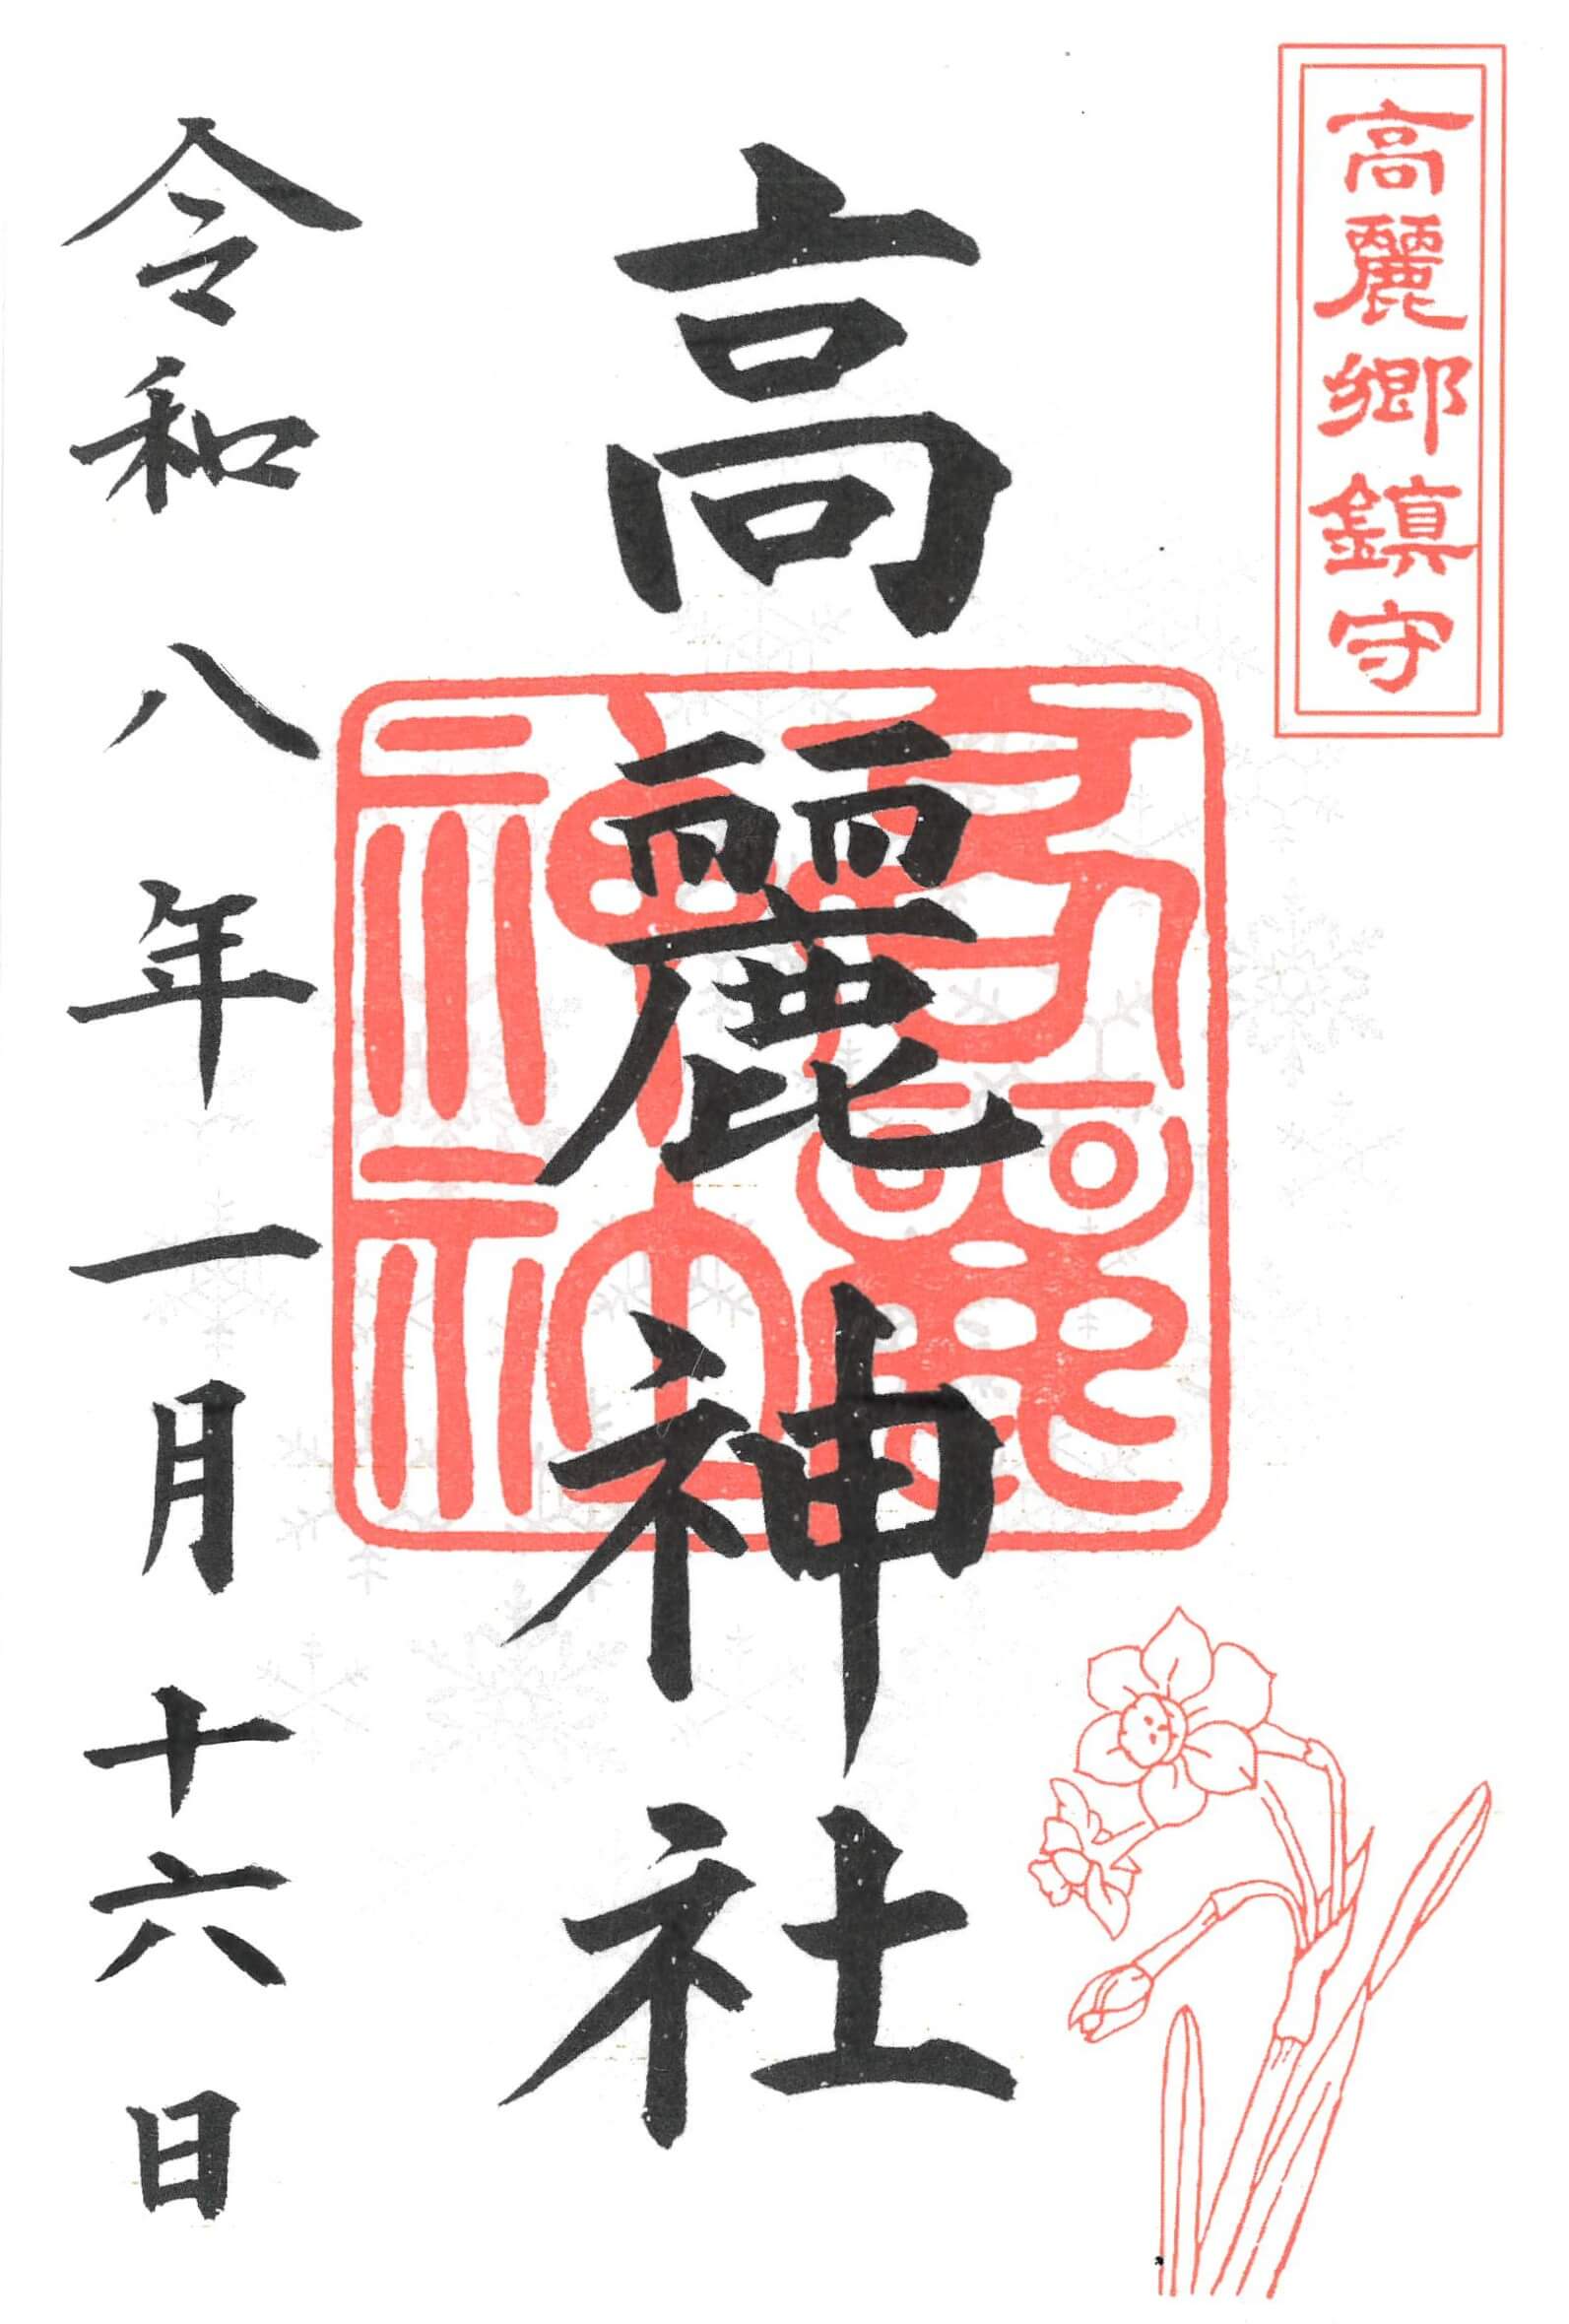 高麗郷鎮守
高麗神社
高麗神社
令和八年一月十六日